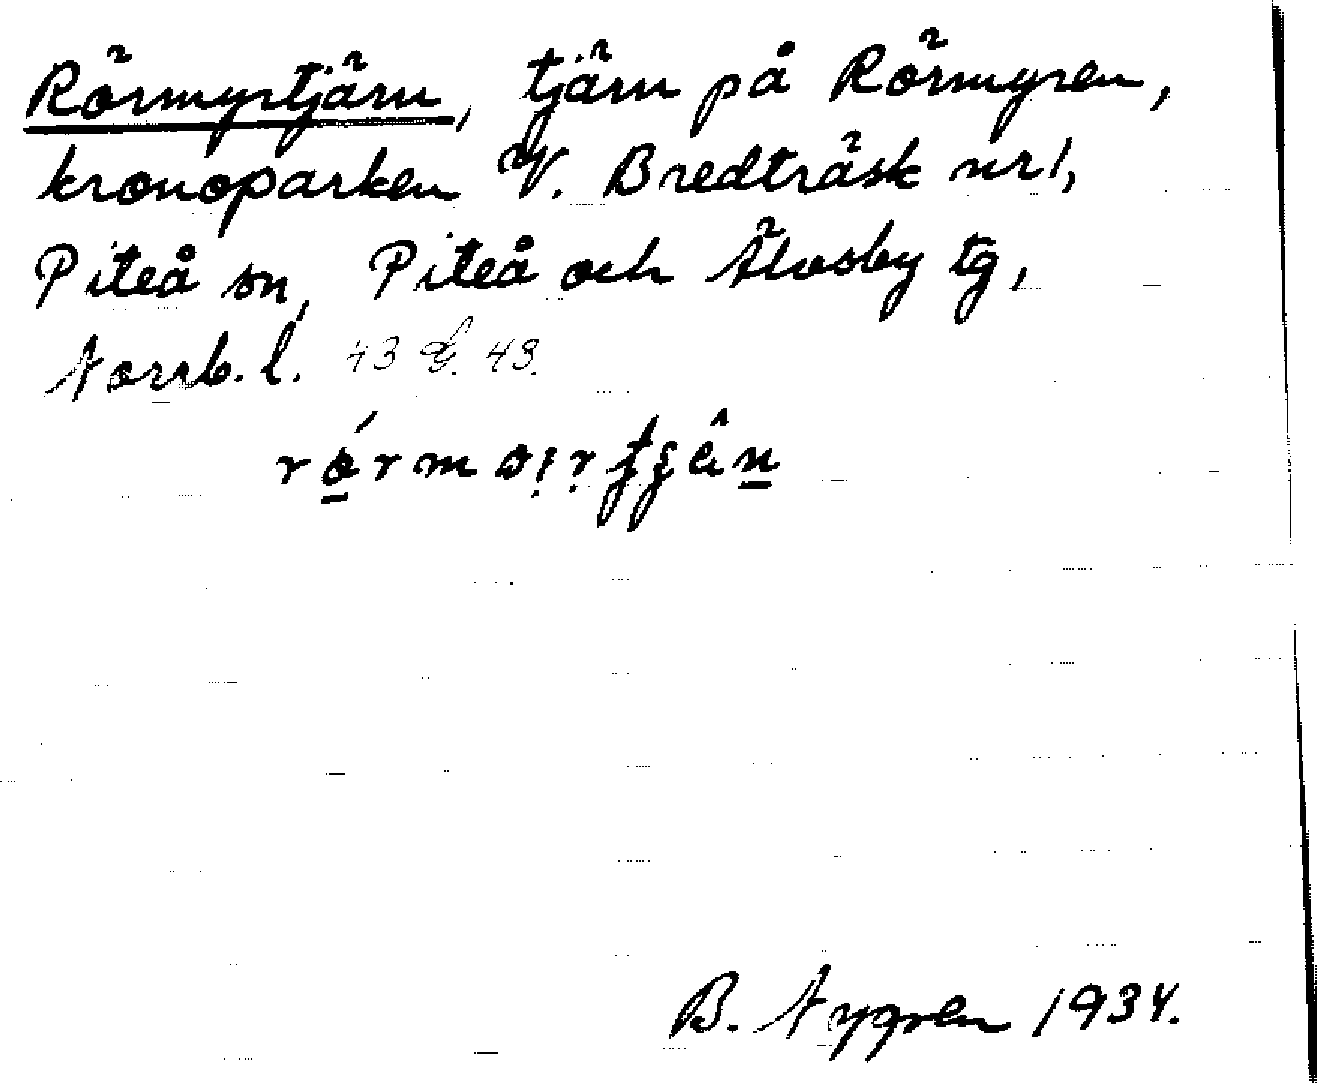 Rörmyrtjärn, tjärn på Rörmyren,
kronoparken V. Bredträsk nr 1,
Piteå sn, Piteå och Älvsby tg,
Norrb. l. 43 43.
B. Nygren 1934.